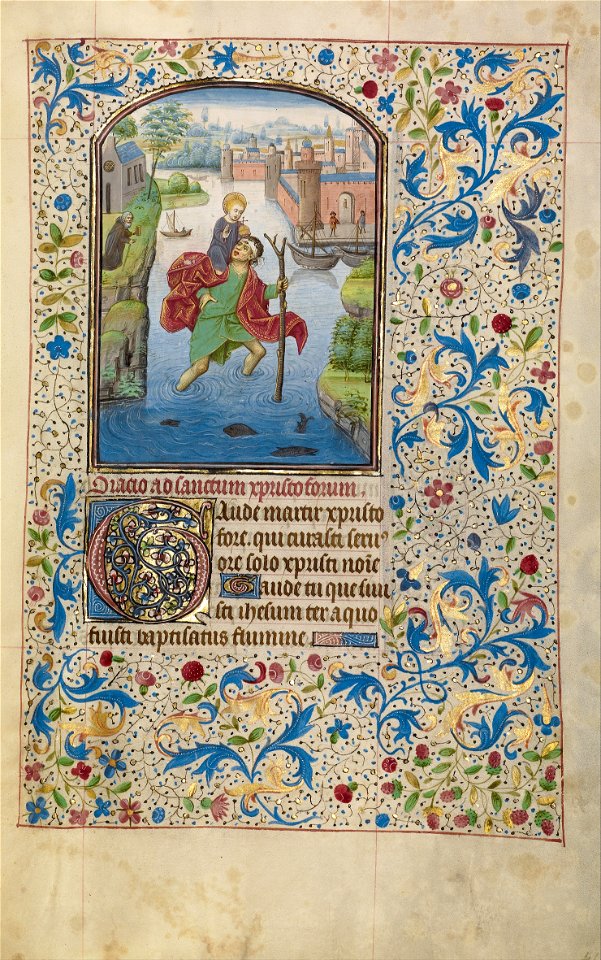 Oracio ad sanctum xpristoforum.
Gaude martir xpristo
fore. qui curasti seruꝰ
ore solo xpristi noīe
Gaude tu que sun
sti ihesum ter a quo
fuisti baptisatus flumine